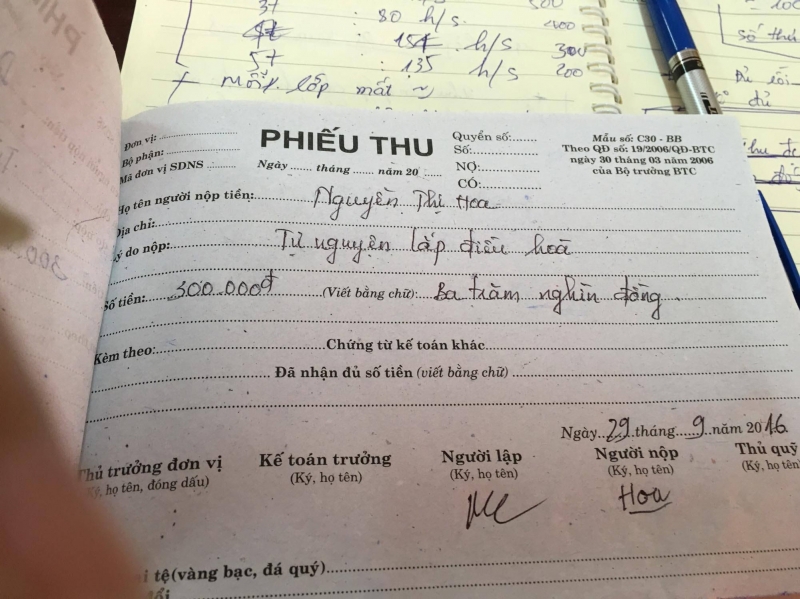 37 : 80 h/s 500
47 : 154 h/s 300
57 : 135 h/s 200
+ mỗi lớp mất
Số
Đủ
đủ
Đơn vị:
Bộ phận:
Mã đơn vị SDNS
PHIẾU THU
Ngày ........ tháng ........ năm 20
Quyển số:
Số:
NỢ:
CÓ:
Mẫu số: C30 - BB
Theo QĐ số: 19/2006/QĐ-BTC
ngày 30 tháng 03 năm 2006
của Bộ trưởng BTC
Họ tên người nộp tiền: Nguyễn Thị Hoa
Địa chỉ:
Lý do nộp: Tự nguyện lắp điều hoà
Số tiền: 300.000đ (Viết bằng chữ): Ba trăm nghìn đồng
Kèm theo: Chứng từ kế toán khác
Đã nhận đủ số tiền (viết bằng chữ)
Ngày 29 tháng 9 năm 2016
Thủ trưởng đơn vị Kế toán trưởng Người lập Người nộp Thủ quỹ
(Ký, họ tên, đóng dấu) (Ký, họ tên) (Ký, họ tên) (Ký, họ tên) (Ký, họ tên)
Hoa
tệ(vàng bạc, đá quý)
đổi